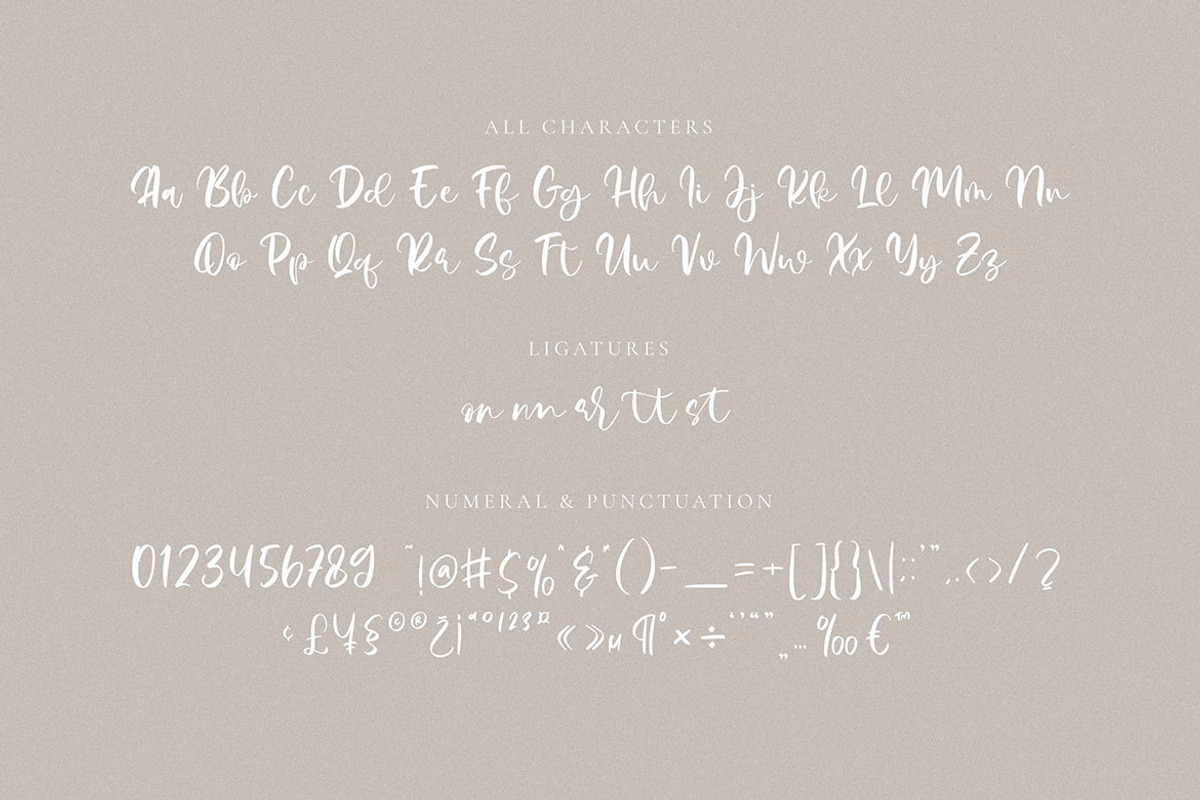 ALL CHARACTERS
Aa Bb Cc Dd Ee Ff Gg Hh Ii Jj Kk Ll Mm Nn
Oo Pp Qq Rr Ss Tt Uu Vv Ww Xx Yy Zz
LIGATURES
on nn ar tt st
NUMERAL & PUNCTUATION
0123456789 ~!@#$%^&*()-_=+[]{}\|;:'",.<>/?
¢£¥§©®¿¡ªº123¤«»µ¶°×÷‘’“”„…‰€™